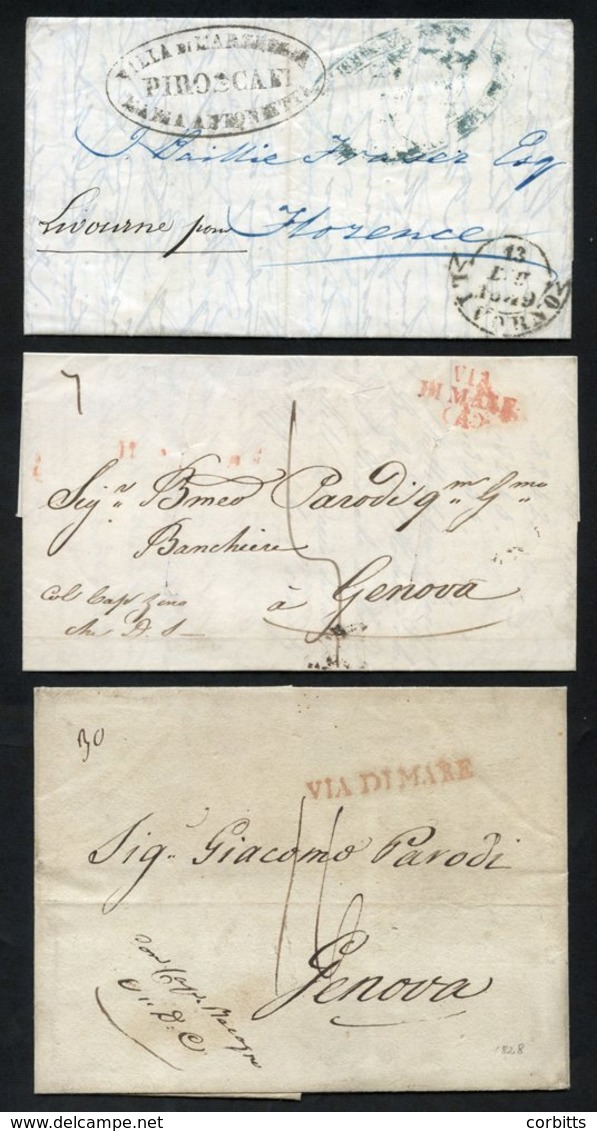 PIROSCAFI
MARIA ANTONIETTA
J. Baillie Fraser Esq
Livourne pour Florence
13
1849
LIVORNO
7
VIA
DI MARE
(A)
Sigr Bmeo Parodi qm Gmo
Banchiere
à Genova
Col Cap
che D. S
30
VIA DI MARE
Sigr Giacomo Parodi
Genova
1828
© corbitts